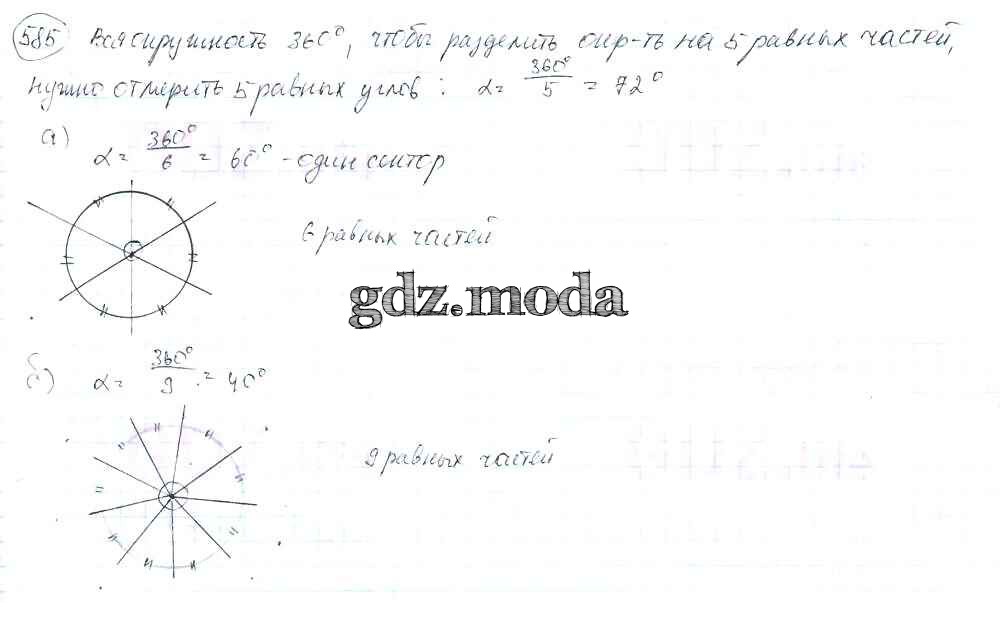 585 Вся окружность 360°, чтобы разделить окр-ть на 5 равных частей,
нужно отмерить 5 равных углов : α = 360°/5 = 72°
а) α = 360°/6 = 60° - один сектор
6 равных частей
gdz.moda
б) α = 360°/9 = 40°
9 равных частей